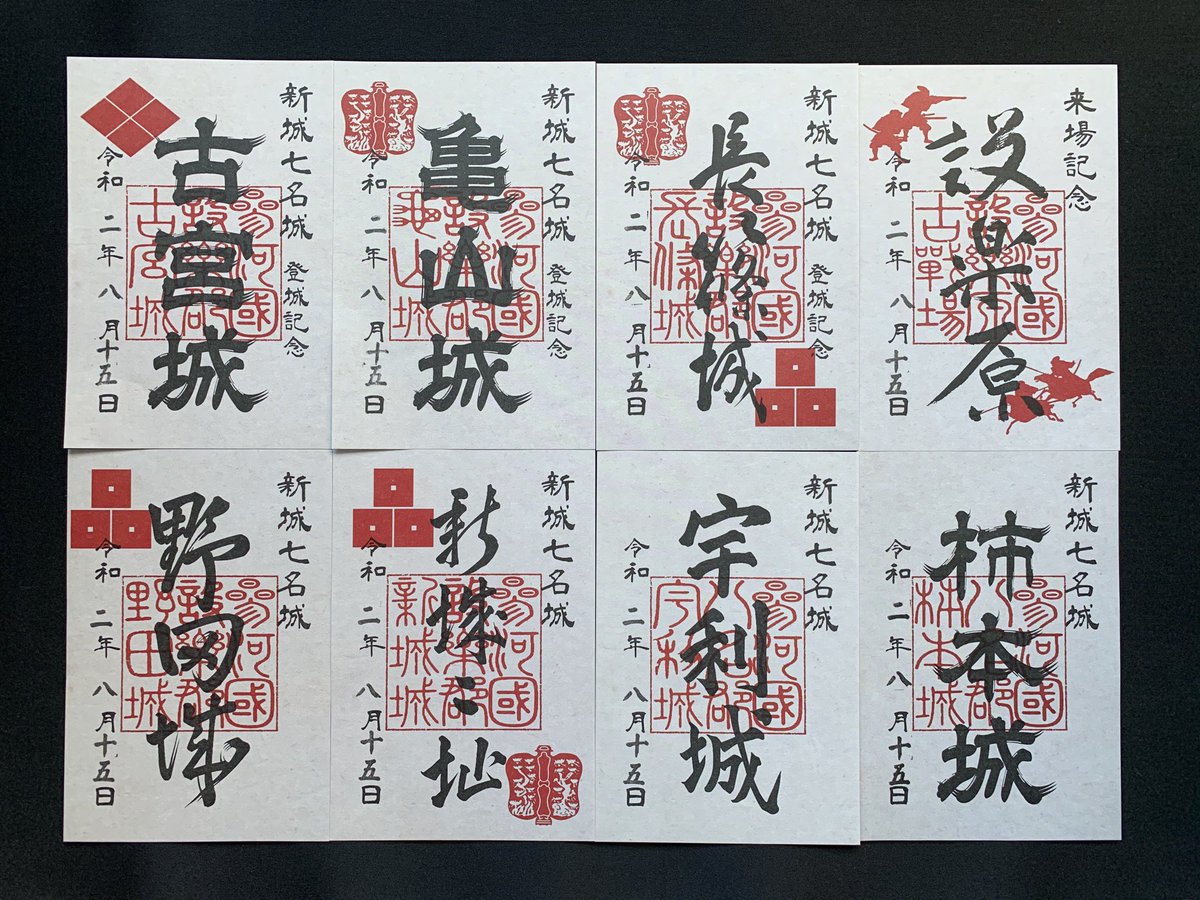 新城七名城 登城記念
古宮城
參河國
設樂郡
古宮城
令和二年八月十五日
新城七名城 登城記念
亀山城
參河國
設樂郡
龜山城
令和二年八月十五日
新城七名城 登城記念
長篠城
參河國
設樂郡
令和二年八月十五日
来場記念
設楽原
參河國
設樂郡
古戰場
令和二年八月十五日
新城七名城
野田城
參河國
設樂郡
野田城
令和二年八月十五日
新城七名城
新城〻址
參河國
設樂郡
新城城
令和二年八月十五日
新城七名城
宇利城
參河國
八名郡
宇利城
令和二年八月十五日
新城七名城
柿本城
參河國
八名郡
柿本城
令和二年八月十五日